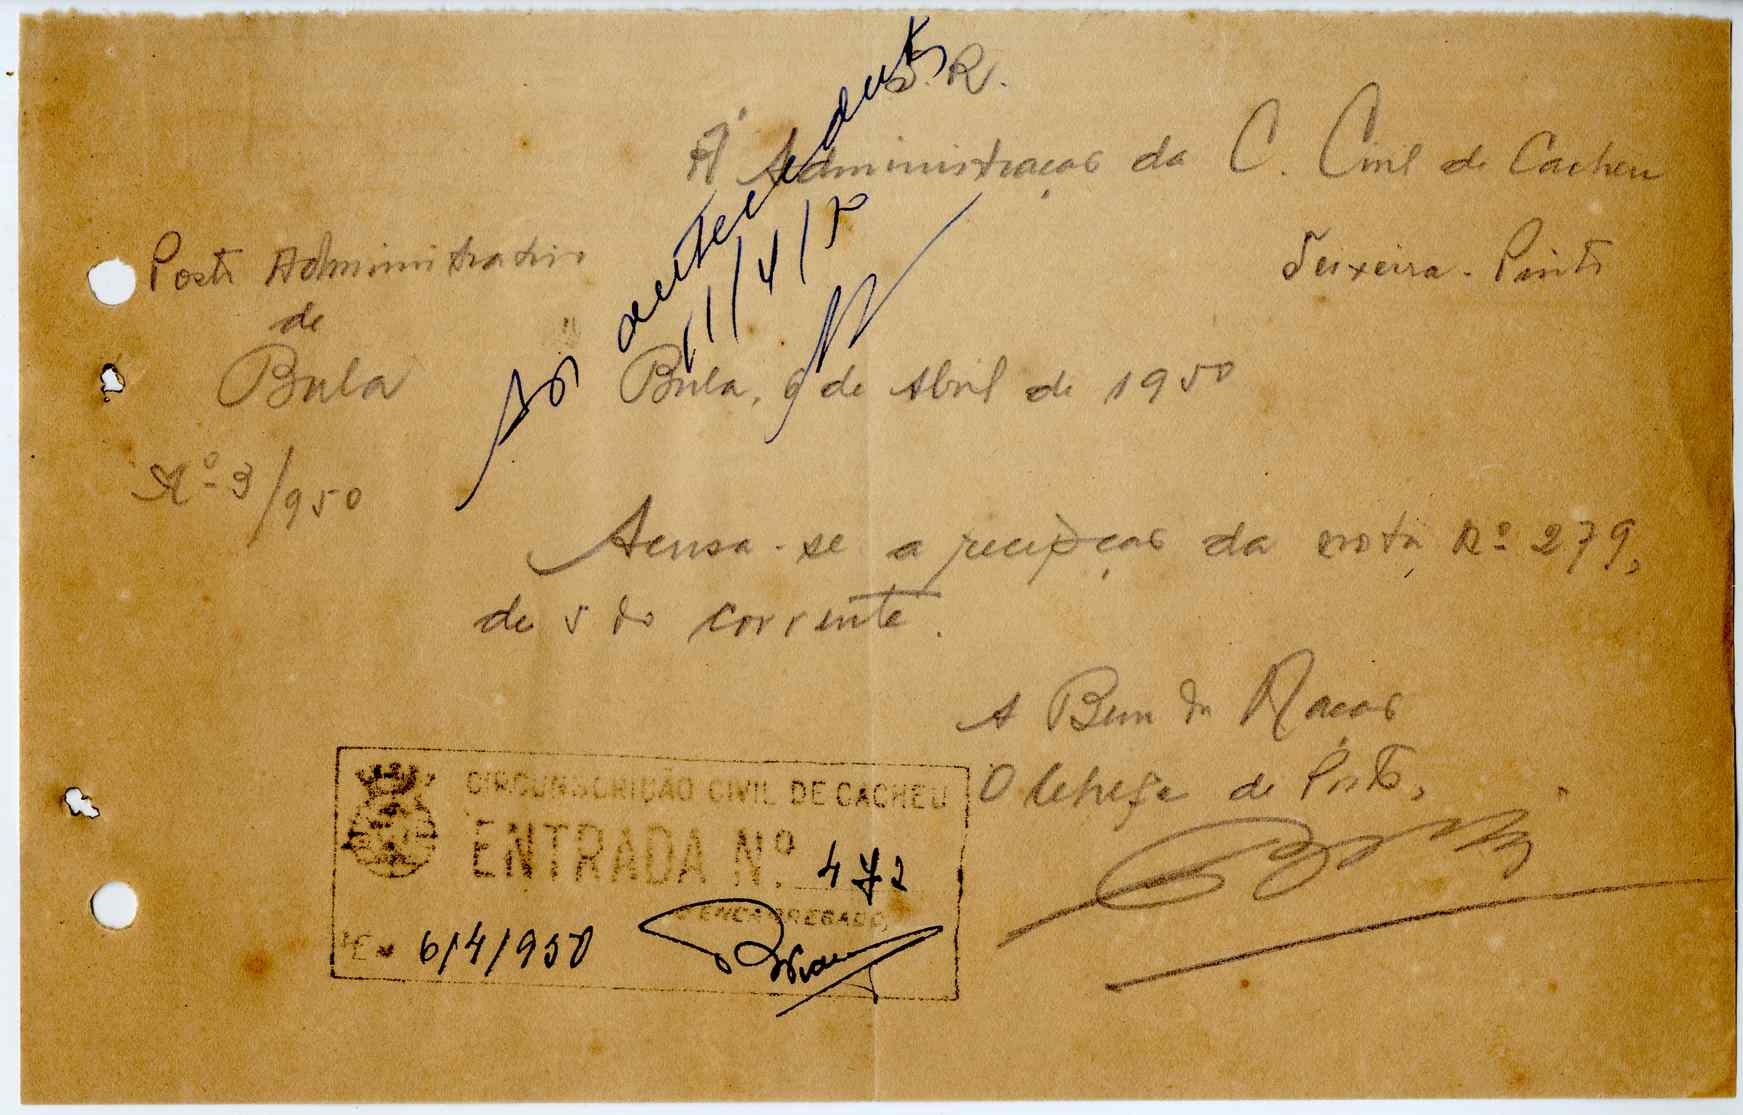 S. R.
Á Administração da C. Civil de Cacheu
Teixeira-Pinto
Posto Administrativo
de
Bula
Nº 3/950
Aos antecedentes
11/4/50
Bula, 6 de Abril de 1950
Acusa-se a recepção da nota Nº 279,
de 5 do corrente.
A Bem da Nação
O Chefe de Posto,
CIRCUNSCRIÇÃO CIVIL DE CACHEU
ENTRADA N.º 472
O ENCARREGADO,
Em 6/4/950